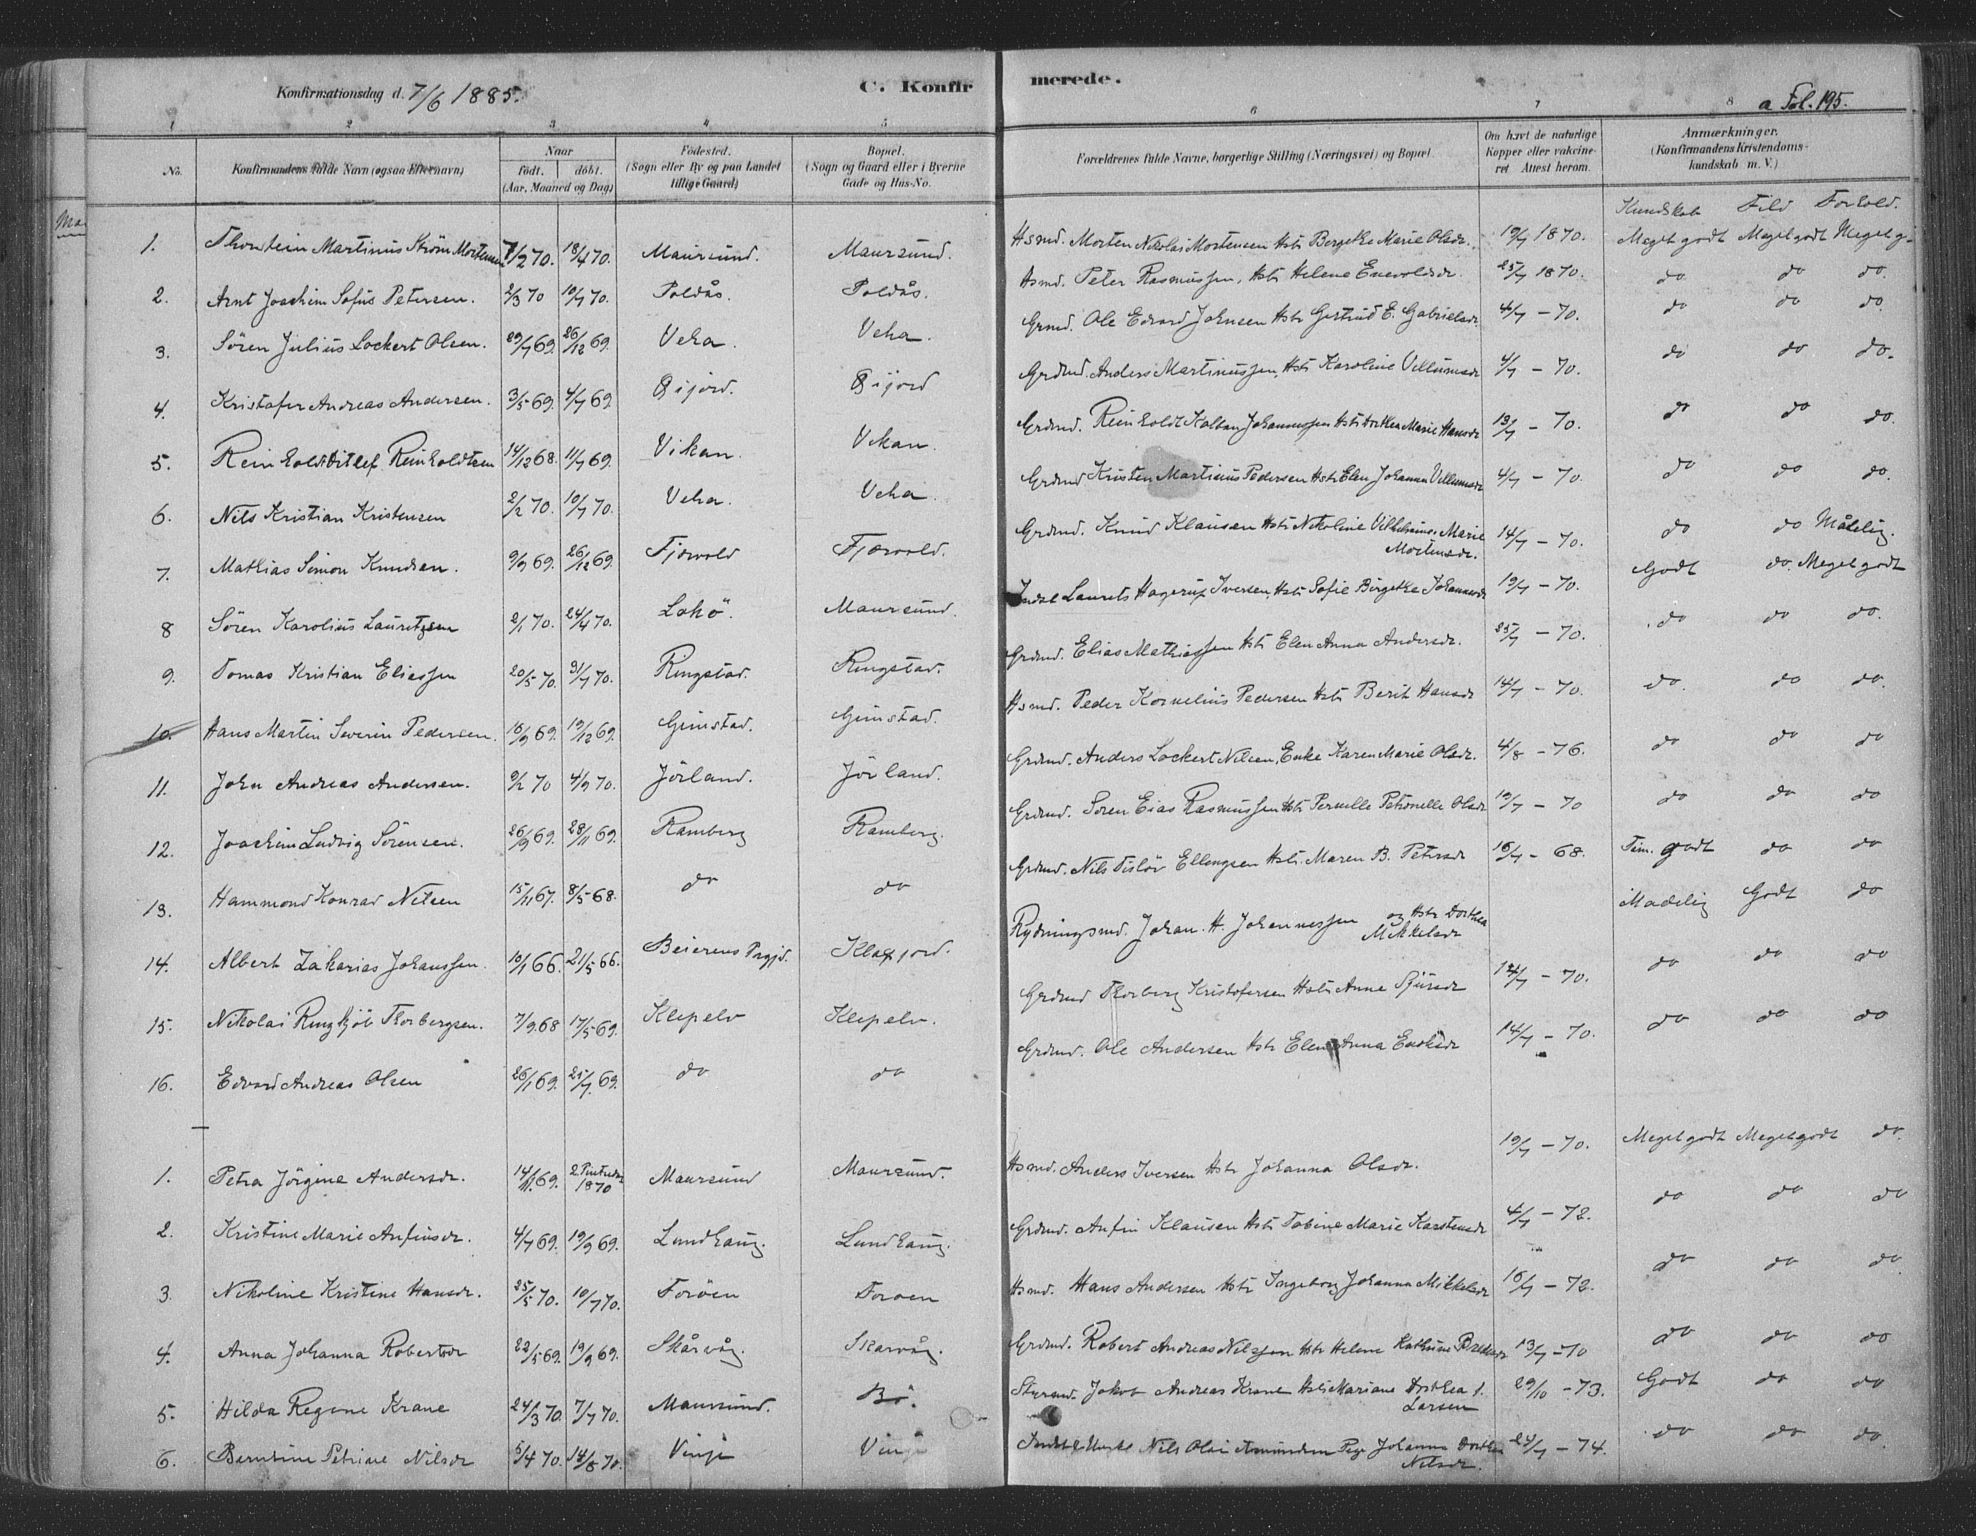 Konfirmationsdag d. 7/6 1885. C. Konfir merede. a Fol. 195.
1 2 3 4 5 6 7 8
No. Konfirmandens fulde Navn (ogsaa Efternavn) Naar født. døbt. (Aar, Maaned og Dag) Fødested. (Sogn eller By og paa Landet tillige Gaard) Bopæl. (Sogn og Gaard eller i Byerne Gade og Hus-No. Forældrenes fulde Navne, borgerlige Stilling (Næringsvei) og Bopæl Om havt de naturlige Kopper eller vakcineret Attest herom. Anmærkninger. (Konfirmandens Kristendomskundskab m. V.)
Kundskab Flid Forhold.
1. Thorstein Martinus Strøm Mortensen 7/2 70. 18/4 70. Maursund. Maursund. Hsmd. Morten Nikolai Mortensen Hstr Bergitte Marie Olsdr. 19/7 1870. Meget godt Meget godt Meget g.
2. Arnt Joachim Sofus Petersen. 2/3 70 10/7 70. Poldås. Poldås. Hsmd. Peter Rasmussen, Hstr Helene Enevoldsdr. 25/7 1870. do do do.
3. Søren Julius Lockert Olsen. 29/7 69. 26/12 69. Veha. Veha. Grmd. Ole Edvard Johnsen Hstr Gertrud E. Gabrielsdr. 4/7 - 70. do do do.
4. Kristofer Andreas Andersen. 3/5 69. 4/7 69 Gijord. Gijord Grdmd. Anders Martinussen, Hstr Karoline Villumsdr 4/7 - 70. do do do.
5. Reinholdt Ditlef Reinholdtsen 14/12 68. 11/7 69. Vikan. Vikan. Grdmd. Reinholdt Kolban Johannessen Hstr Dorthea Marie Hansdr 13/7 - 70. do do do.
6. Nils Kristian Kristensen 2/2 70. 10/7 70. Veha. Veha. Grdmd Kristen Martinus Pedersen Hstr Elen Johanna Villumsdr 4/7 - 70. do do do.
7. Mathias Simon Knudsen. 9/9 69. 26/12 69. Fjærvold Fjærvold. Grdmd. Knud Klausen Hstr Nikoline Vilhelmine Marie Mortensdr. 14/7 - 70. do do Mådelig.
8 Søren Karolius Lauritzen 2/1 70. 24/4 70. Lokø. Maursund. Indst Laurits Hagerup Iversen Hstr Sofie Birgitte Johannesdr 19/7 - 70. Godt do. Meget godt
9. Tomas Kristian Eliassen 20/5 70. 31/7 70. Ringstad. Ringstad. Grdmd. Elias Mathiassen Hstr Elen Anna Andersdr. 25/7 - 70. do do do.
10. Hans Martin Severin Pedersen. 18/9 69. 19/12 69. Gimstad. Gimstad. Hsmd. Peder Kornelius Pedersen Hstr Berit Hansdr 14/7 - 70. do. do do.
11. John Andreas Andersen. 9/2 70 4/9 70. Jörland. Jörland. Grdmd. Anders Lockert Nilsen, Enke Karen Marie Olsdr. 4/8 - 76. do do do
12. Joachim Ludvig Sörensen. 26/9 69. 28/11 69. Ramberg Ramberg. Grdmd. Sören Eias Rasmussen Hstr Pernelle Petronelle Olsdr 19/7 - 70 do do do
13. Hammond Konrad Nilsen 15/11 67. 8/5 68. do do Grdmd. Nils Tislöv Ellingsen Hstr. Maren B. Petersdr 16/7 - 68. Tem. godt do do
14. Albert Zakarias Johanssen. 10/1 66. 21/5 66. Beierens Prgjd. Klaxjord. Rydningsmd. Johan. H. Johannessen og Hstr Dorthea Mikkelsdr Madelig Godt do
15. Nikolai Ringkjöb Thorbergsen. 7/9 68 17/5 69. Klepelv Klepelv. Grdmd Thorberg Kristofersen Hstr Anne Sjursdr 14/7 - 70. do do do
16. Edvard Andreas Olsen 26/1 69. 25/7 69. do do Grdmd. Ole Andersen Hstr Elen Anna Enoksdr 14/7 - 70. do do do
1. Petra Jörgine Andersdr. 14/11 69. 2 Pintsedag 1870 Maursund Maursund. Hsmd. Anders Iversen Hstr Johanna Olsdr. 19/7 - 70. Meget godt Meget godt do.
2. Kristine Marie Anfinsdr. 4/7 69. 19/9 69. Lundhaug. Lundhaug. Grdmd. Anfin Klausen Hstr Tobine Marie Karstensdr 4/7 - 72. do do do
3. Nikoline Kristine Hansdr. 25/5 70. 10/7 70. Foröen Foroen Hsmd. Hans Andersen Hstr Ingeborg Johanna Mikkelsdr 16/7 - 72. do do do
4. Anna Johanna Robertsdr 22/5 69. 19/9 69. Skårvåg. Skarvåg. Grdmd. Robert Andreas Nilssen Hstr Helene Kathrine 13/7 - 70 do do do
5. Hilda Regine Krane 24/3 70. 7/7 70. Maursund. Bö. Styrmd Jakob Andreas Krane Hstr Mariane Dorthea f. Larsen 29/10 - 73. Godt do do
6. Berntine Petrine Nilsdr 5/4 70. 14/8 70. Vinje Vinje Indst & Nils Olai Amundsen Pige Johanna Dorthea Nilsdr. 24/7 - 74. do do do.